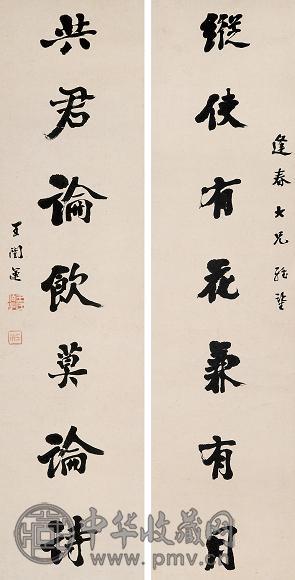 逢春大兄雅鑒
縱使有花兼有月
共君論飲莫論詩
王闓運
中华收藏网
www.pmv.cn